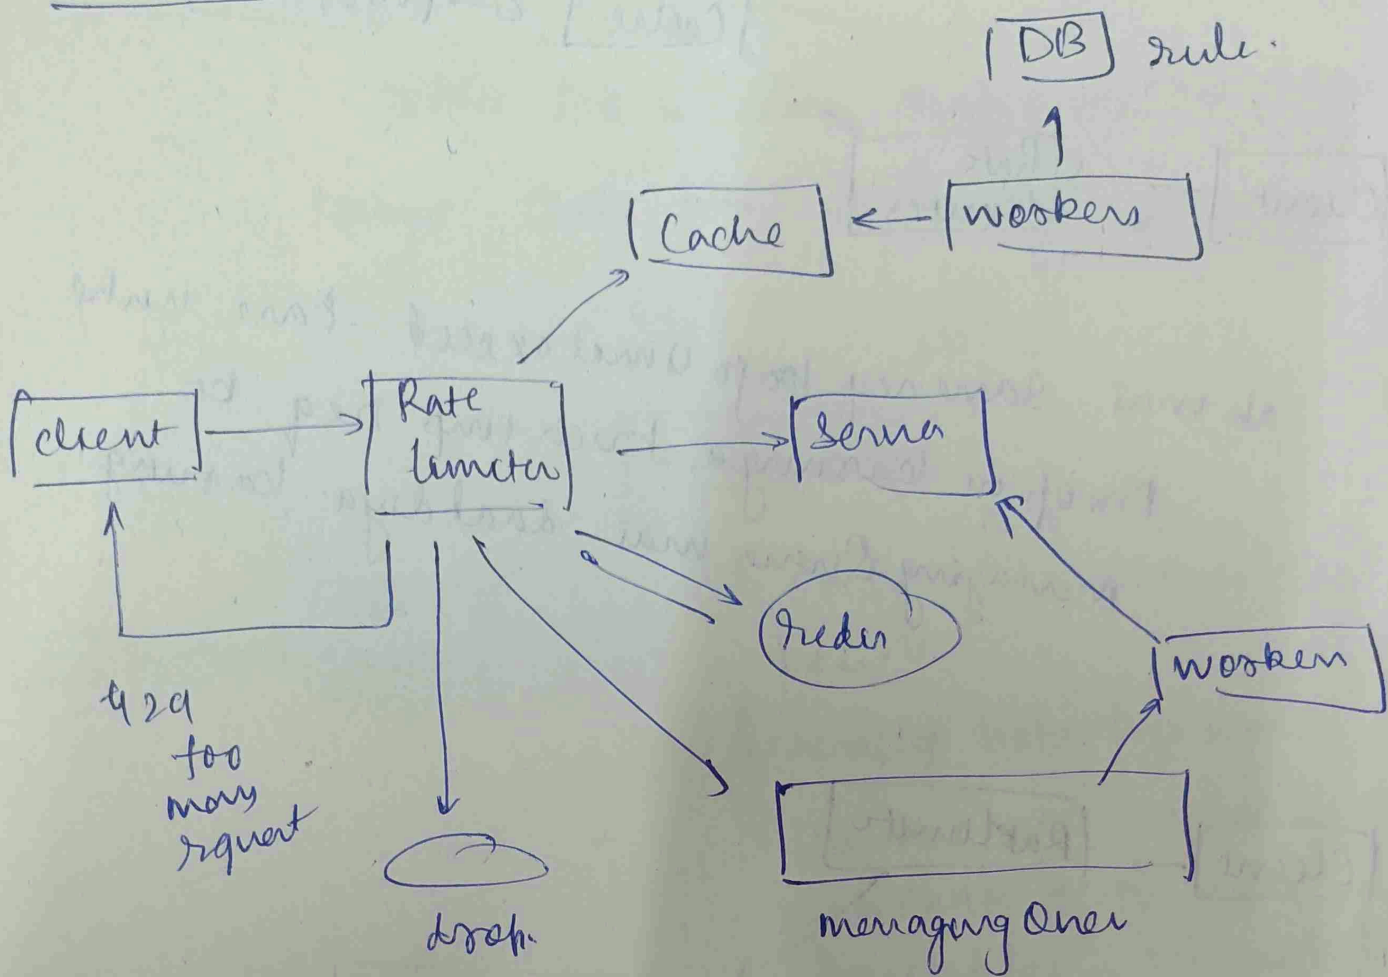 DB rule.
Cache
workers
client
Rate
limiter
Server
redis
workers
429
too
many
request
drop.